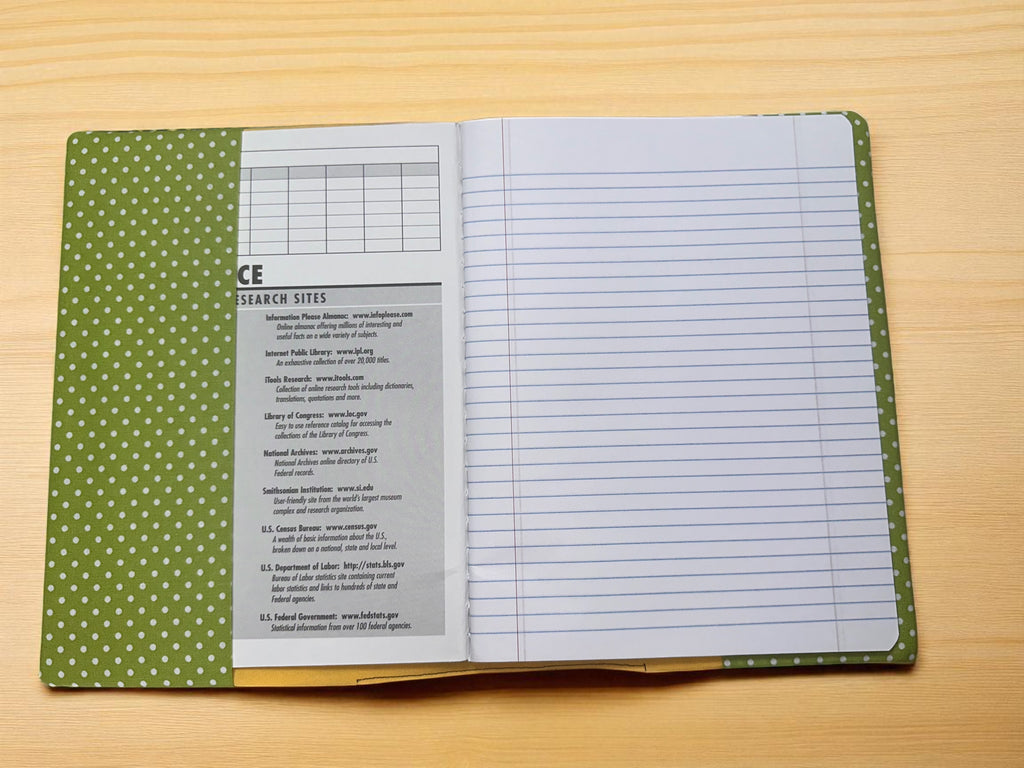 CE
ESEARCH SITES
Information Please Almanac: www.infoplease.com
Online almanac offering millions of interesting and
useful facts on a wide variety of subjects.
Internet Public Library: www.ipl.org
An exhaustive collection of over 20,000 titles.
iTools Research: www.itools.com
Collection of online research tools including dictionaries,
translations, quotations and more.
Library of Congress: www.loc.gov
Easy to use reference catalog for accessing the
collections of the Library of Congress.
National Archives: www.archives.gov
National Archives online directory of U.S.
Federal records.
Smithsonian Institution: www.si.edu
User-friendly site from the world's largest museum
complex and research organization.
U.S. Census Bureau: www.census.gov
A wealth of basic information about the U.S.,
broken down on a national, state and local level.
U.S. Department of Labor: http://stats.bls.gov
Bureau of Labor statistics site containing current
labor statistics and links to hundreds of state and
Federal agencies.
U.S. Federal Government: www.fedstats.gov
Statistical information from over 100 federal agencies.